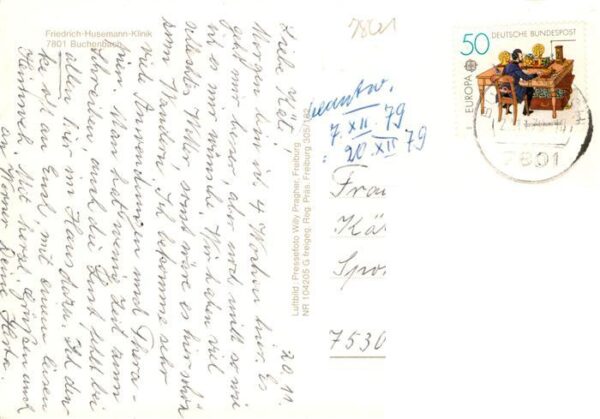 Friedrich-Husemann-Klinik
7801 Buchenbach
20.11.
Liebe Kät!
Morgen bin ich 4 Wochen hier. Es
geht mir besser, aber noch nicht so wie
ich es mir wünsche. Wir haben viel
schlechtes Wetter sonst wäre es hier schön
zum Wandern. Ich bekomme sehr
viele Anwendungen und Thera-
pien. Man hat wenig Zeit zum
Schreiben und die Lust fehlt bei
allen hier im Haus dazu. Ich den-
ke oft an Euch mit einem leisen
Heimweh. Mit herzl. Grüßen auch
an Werner Deine Herta.
Luftbild: Pressefoto Willy Pragher, Freiburg
NR 104205 G freigeg. Reg. Präs. Freiburg 305/182
7801
beantw.
7. XII. 79
20. XII 79
50 DEUTSCHE BUNDESPOST
EUROPA
7801
Frau
Kä
Spo
7530